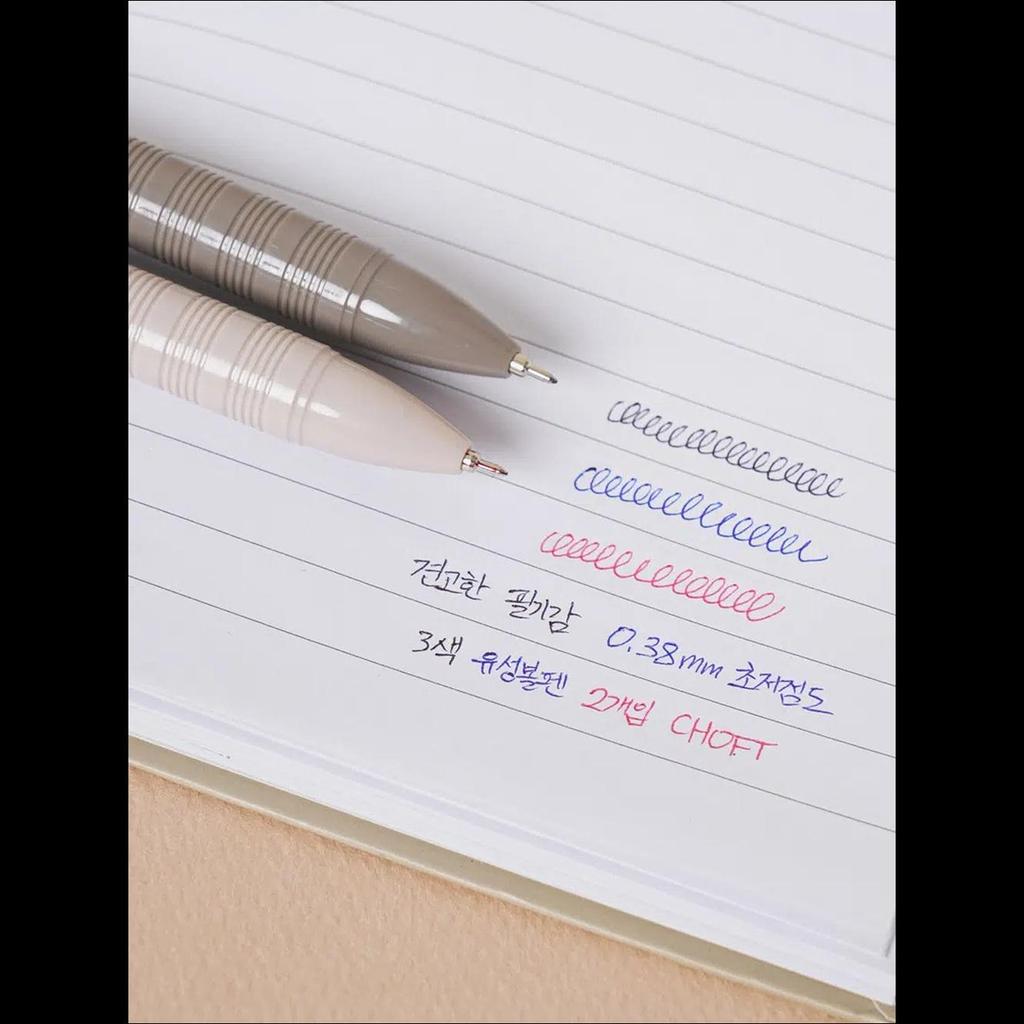 견고한 필기감 0.38mm 초저점도
3색 유성볼펜 2개입 CHOFT